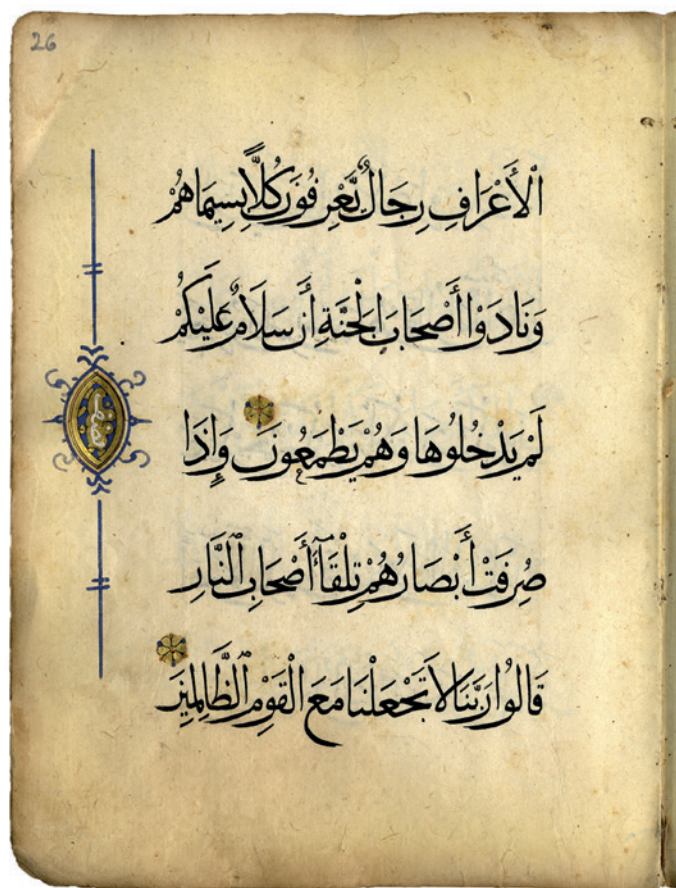 26
الْأَعْرَافِ رِجَالٌ يَعْرِفُونَ كُلًّا بِسِيمَاهُمْ
وَنَادَوْا أَصْحَابَ الْجَنَّةِ أَن سَلَامٌ عَلَيْكُمْ
لَمْ يَدْخُلُوهَا وَهُمْ يَطْمَعُونَ وَإِذَا
صُرِفَتْ أَبْصَارُهُمْ تِلْقَآءَ أَصْحَابِ النَّارِ
قَالُوا رَبَّنَا لَا تَجْعَلْنَا مَعَ الْقَوْمِ الظَّالِمِينَ
نصف